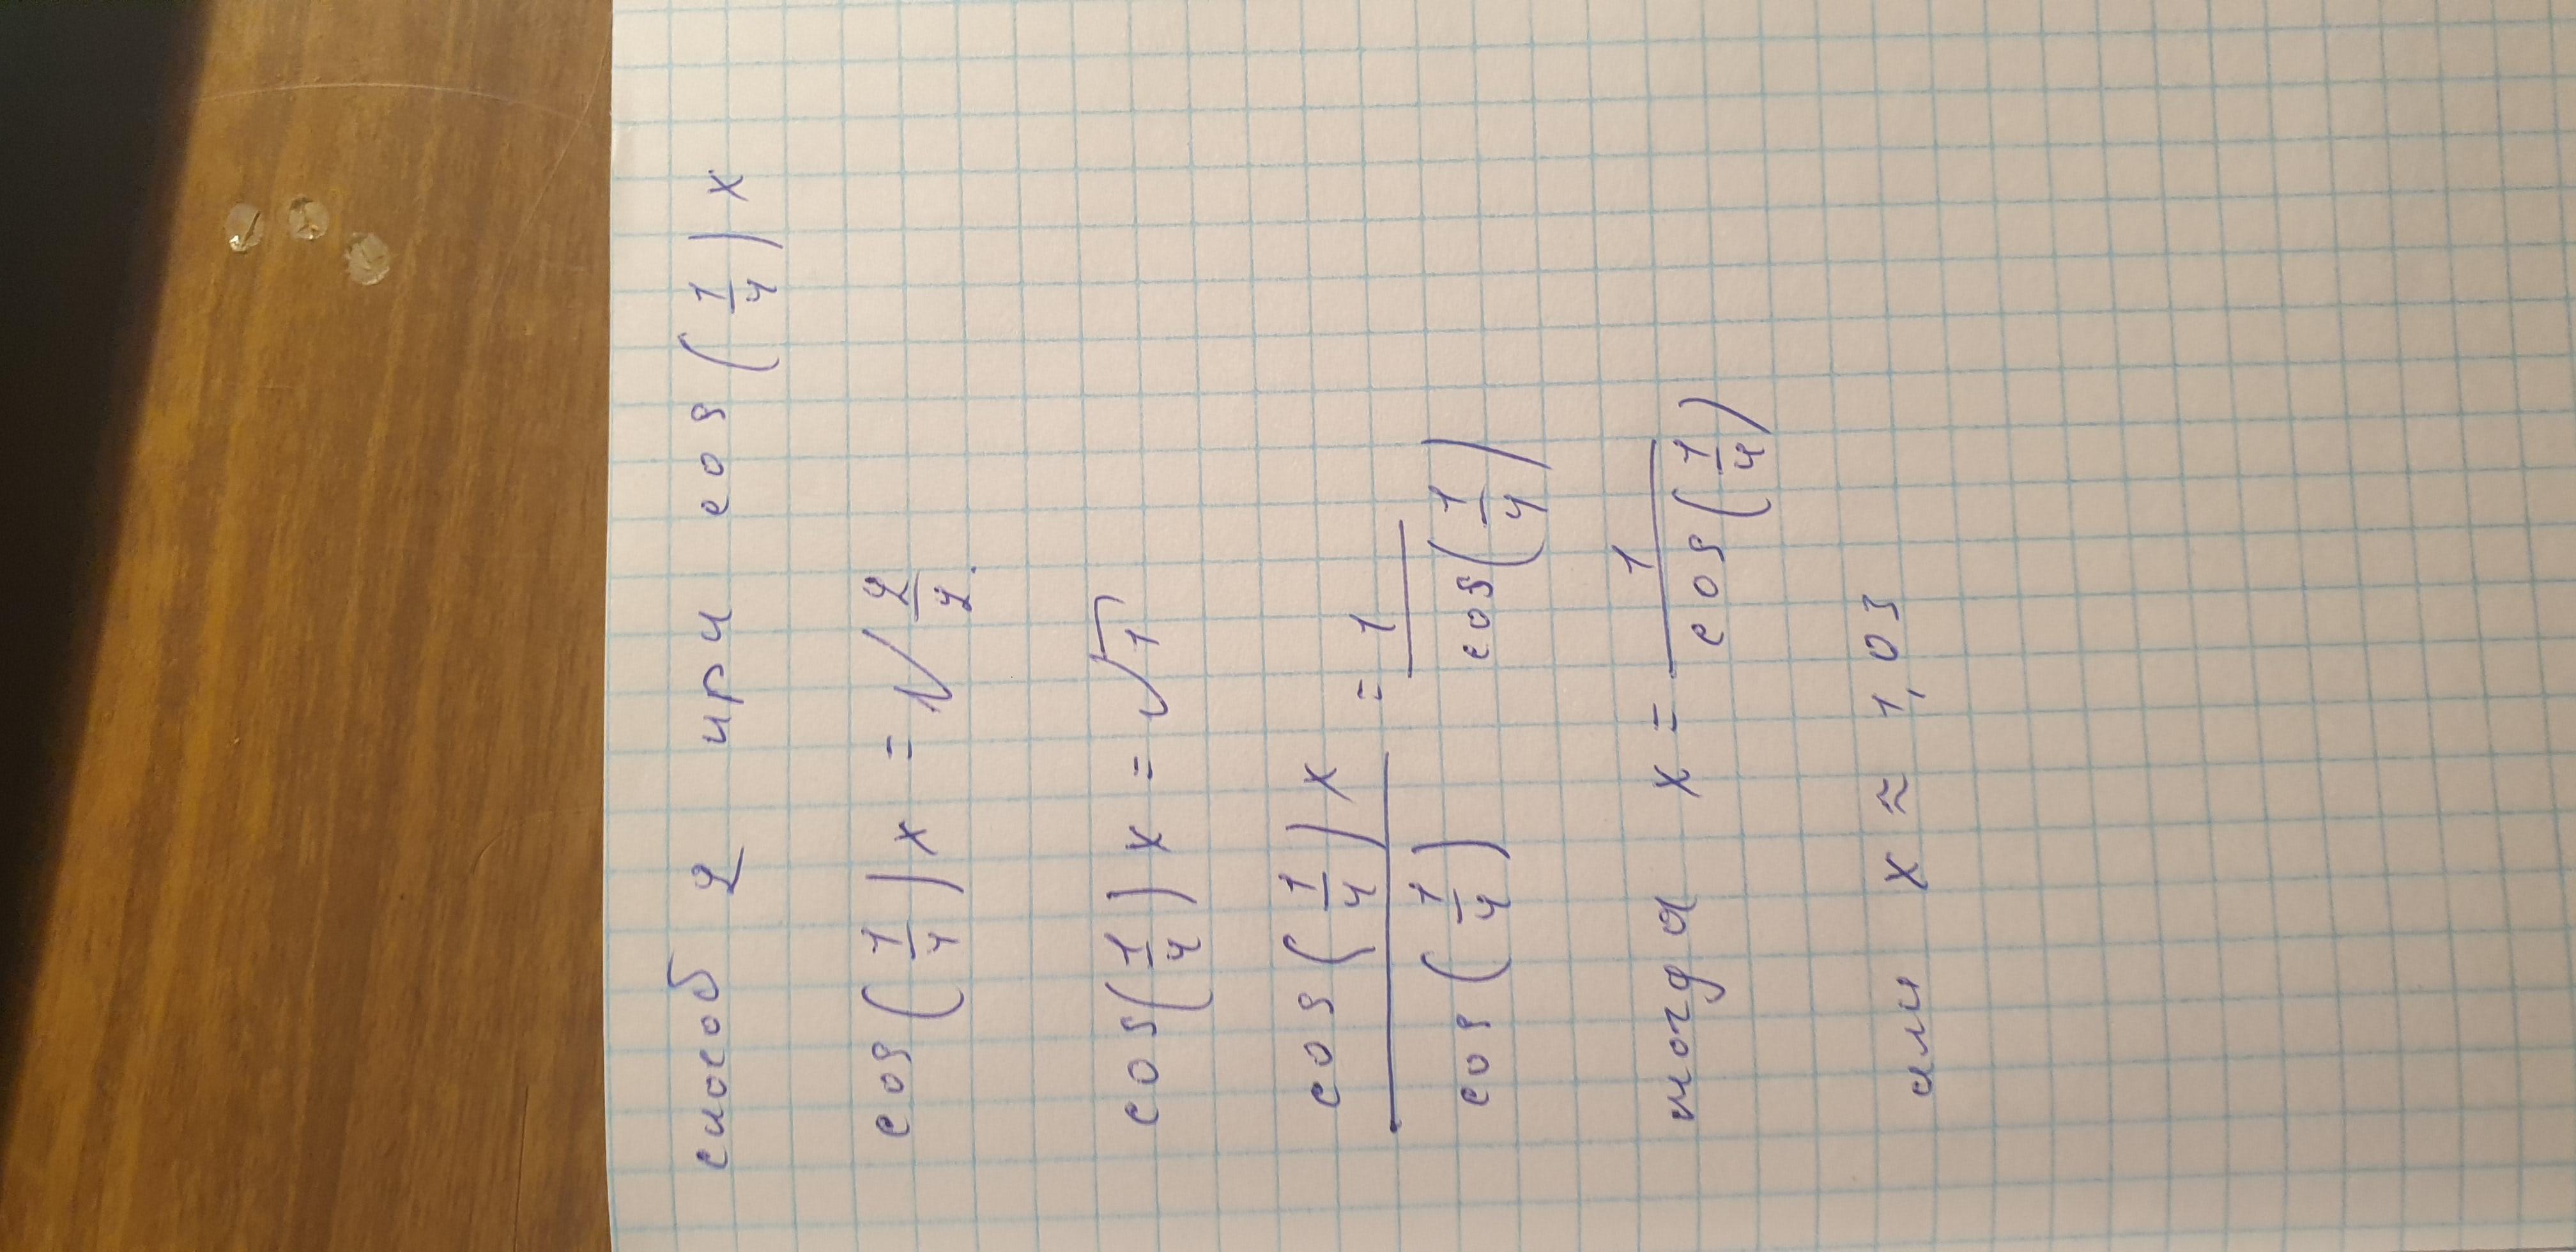 способ 2 при cos(1/4)x
cos(1/4)x = √2/2.
cos(1/4)x = √1
cos(1/4)x / cos(1/4) = 1 / cos(1/4)
тогда x = 1 / cos(1/4)
или x ≈ 1,03